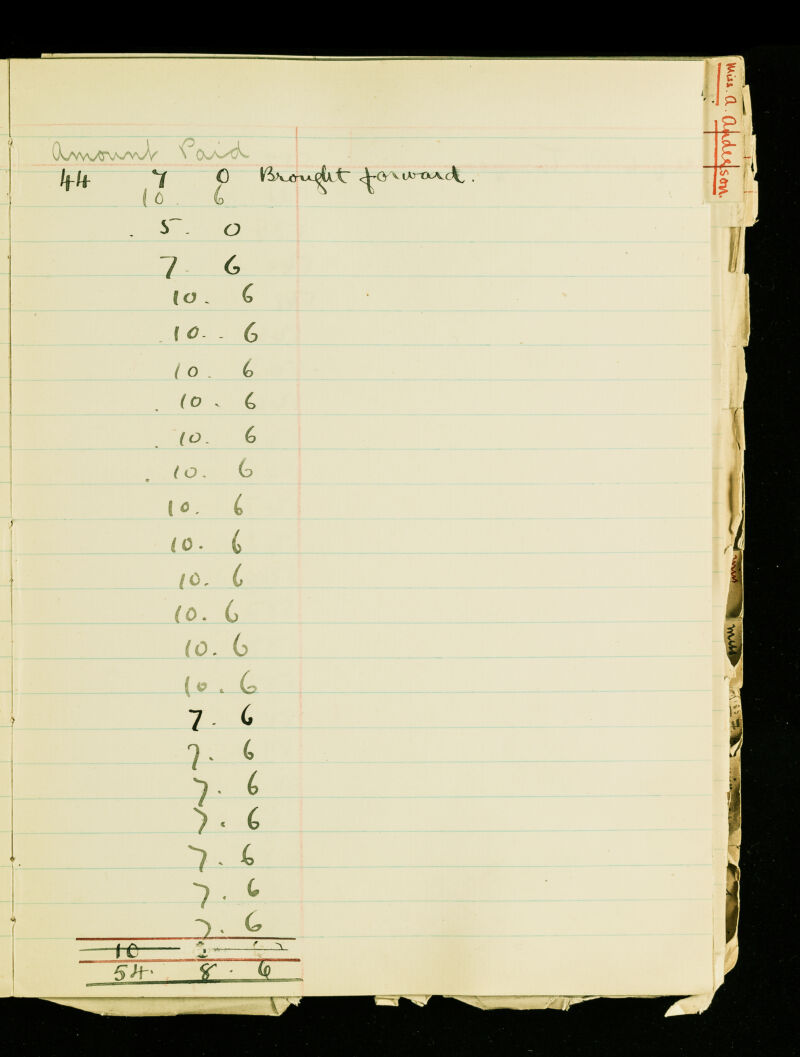 Amount Paid
44 7 0 Brought forward.
10. 6
. 5. 0
7. 6
10. 6
10. - 6
10. 6
. 10. 6
. 10. 6
. 10. 6
10. 6
10. 6
10. 6
10. 6
10. 6
10. 6
7. 6
7. 6
7. 6
7. 6
7. 6
7. 6
7. 6
10
54. 8. 6
Miss. A. Anderson.
Miss